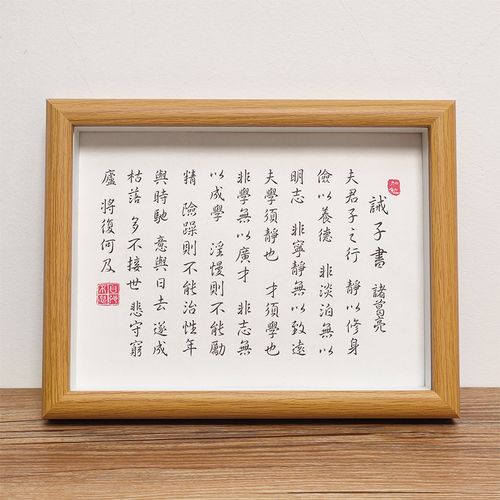 誡子書 諸葛亮
夫君子之行 靜以修身
儉以養德 非淡泊無以
明志 非寧靜無以致遠
夫學須靜也 才須學也
非學無以廣才 非志無
以成學 淫慢則不能勵
精 險躁則不能治性年
與時馳 意與日去 遂成
枯落 多不接世 悲守窮
廬 將復何及